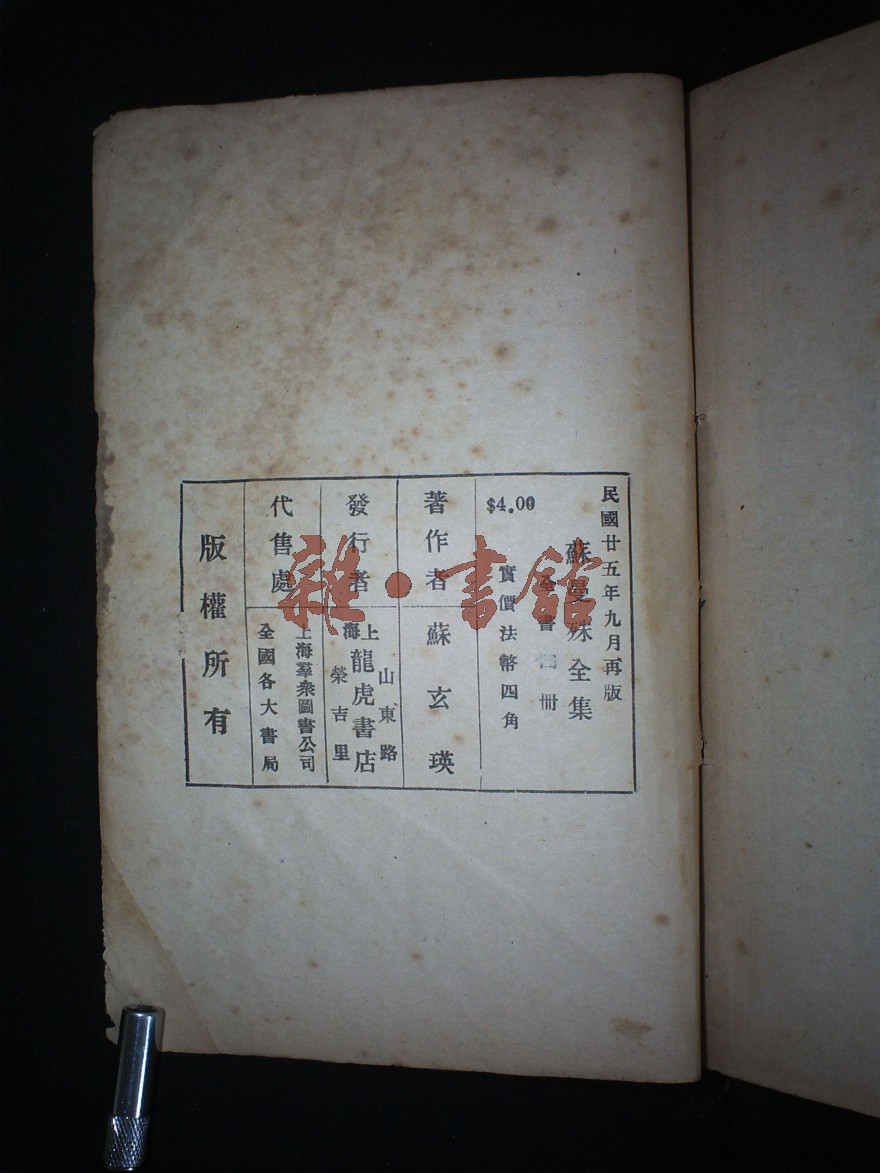 民國廿五年九月再版
蘇曼殊全集
全書 冊
實價法幣四角
$4.00
著作者
蘇玄瑛
發行者
上海
山東路
龍虎書店
榮吉里
代售處
上海羣衆圖書公司
全國各大書局
版權所有
雜·書館